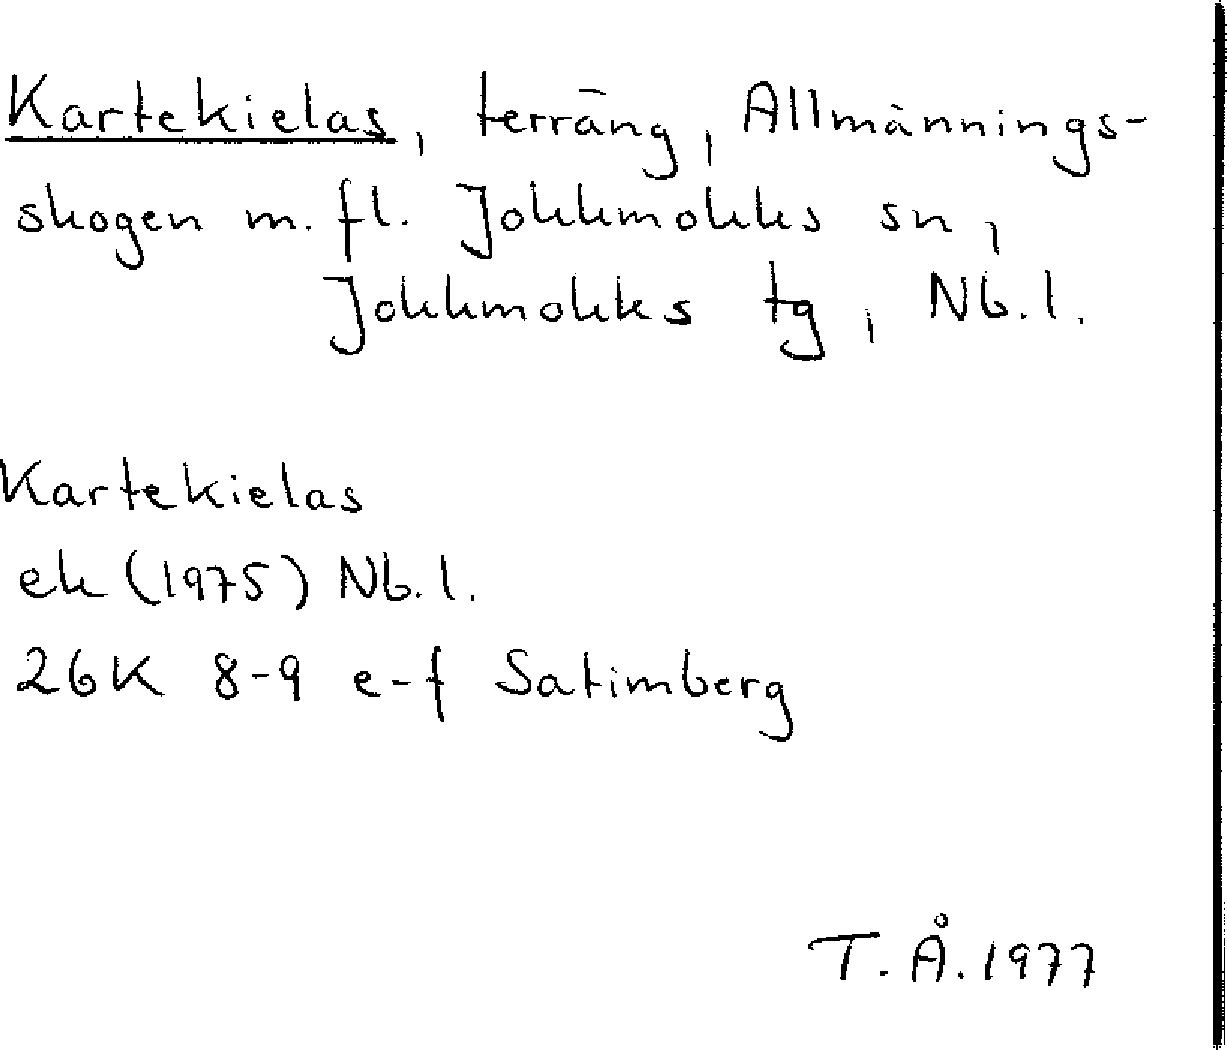 Kartekielas, terräng, Allmännings-
skogen m. fl. Jokkmokks sn,
Jokkmokks tg, Nb. l.
Kartekielas
ek (1975) Nb. l.
26K 8-9 e-f Satimberg
T. Å. 1977